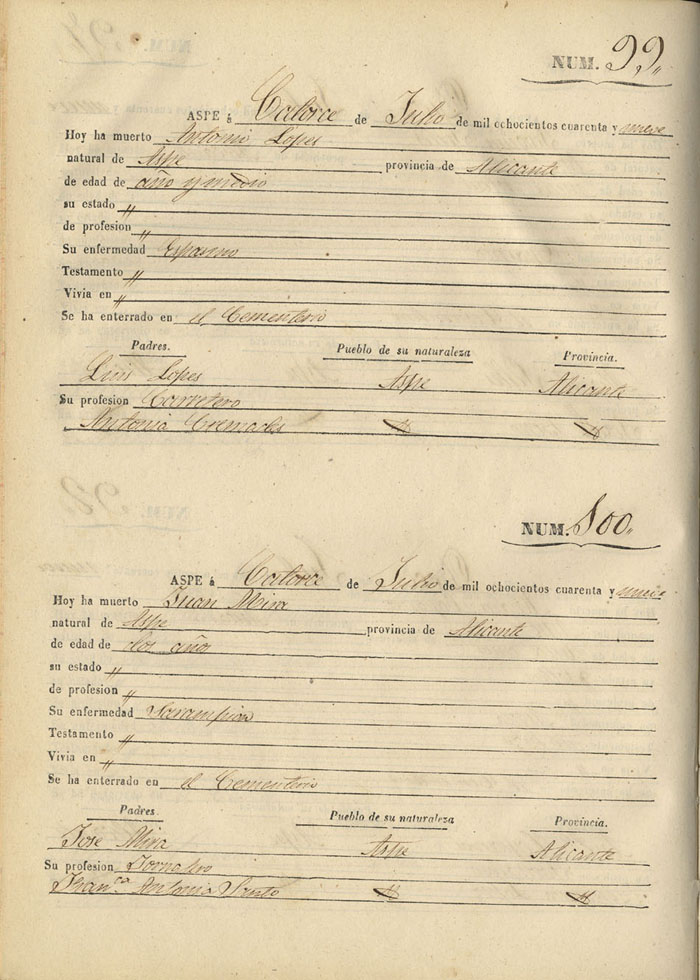 NUM. 99
ASPE á Catorce de Julio de mil ochocientos cuarenta y nueve
Hoy ha muerto Antonio Lopes
natural de Aspe provincia de Alicante
de edad de año y medio
su estado "
de profesion "
Su enfermedad Espasmo
Testamento "
Vivia en "
Se ha enterrado en el Cementerio
Padres. Pueblo de su naturaleza Provincia.
Luis Lopes Aspe Alicante
Su profesion Carretero
Antonia Cremades
NUM. 100
ASPE á Catorce de Julio de mil ochocientos cuarenta y nueve
Hoy ha muerto Juan Mira
natural de Aspe provincia de Alicante
de edad de dos año
su estado "
de profesion "
Su enfermedad Sarampion
Testamento "
Vivia en "
Se ha enterrado en el Cementerio
Padres. Pueblo de su naturaleza Provincia.
Jose Mira Aspe Alicante
Su profesion Jornalero
Fran.ca Antonia Santo